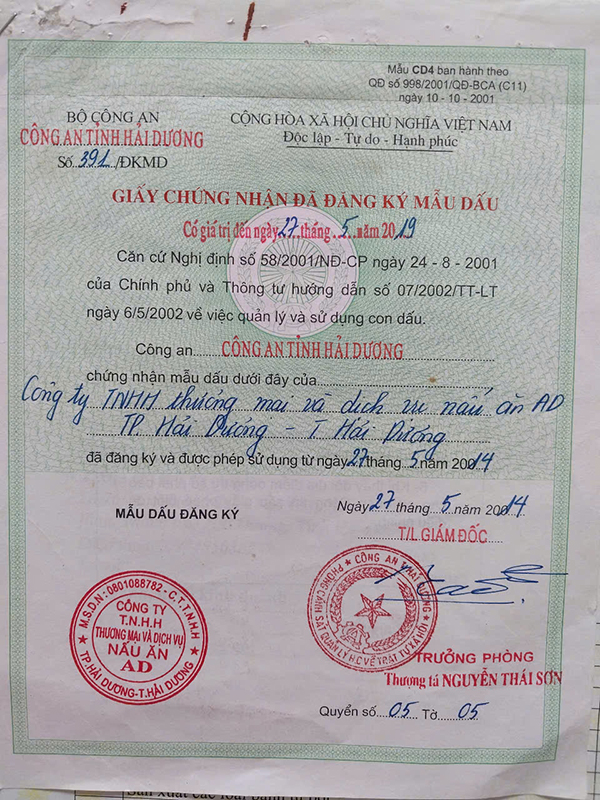 Mẫu CD4 ban hành theo
QĐ số 998/2001/QĐ-BCA (C11)
ngày 10 - 10 - 2001
BỘ CÔNG AN
CÔNG AN TỈNH HẢI DƯƠNG
Số 391/ĐKMD
CỘNG HÒA XÃ HỘI CHỦ NGHĨA VIỆT NAM
Độc lập - Tự do - Hạnh phúc
GIẤY CHỨNG NHẬN ĐÃ ĐĂNG KÝ MẪU DẤU
Có giá trị đến ngày 27 tháng 5 năm 2019
Căn cứ Nghị định số 58/2001/NĐ-CP ngày 24 - 8 - 2001
của Chính phủ và Thông tư hướng dẫn số 07/2002/TT-LT
ngày 6/5/2002 về việc quản lý và sử dụng con dấu.
Công an CÔNG AN TỈNH HẢI DƯƠNG
chứng nhận mẫu dấu dưới đây của
Công ty TNHH thương mại và dịch vụ nấu ăn AD
TP Hải Dương - T. Hải Dương
đã đăng ký và được phép sử dụng từ ngày 27 tháng 5 năm 2014
MẪU DẤU ĐĂNG KÝ
Ngày 27 tháng 5 năm 2014
T/L GIÁM ĐỐC
M.S.D.N: 0801088782 - C.T.T.N.H.H
CÔNG TY
T.N.H.H
THƯƠNG MẠI VÀ DỊCH VỤ
NẤU ĂN
AD
TP.HẢI DƯƠNG-T.HẢI DƯƠNG
CÔNG AN T.HẢI DƯƠNG
PHÒNG CẢNH SÁT QUẢN LÝ H.C VỀ TRẬT TỰ XÃ HỘI
TRƯỞNG PHÒNG
Thượng tá NGUYỄN THÁI SƠN
Quyển số 05 Tờ 05